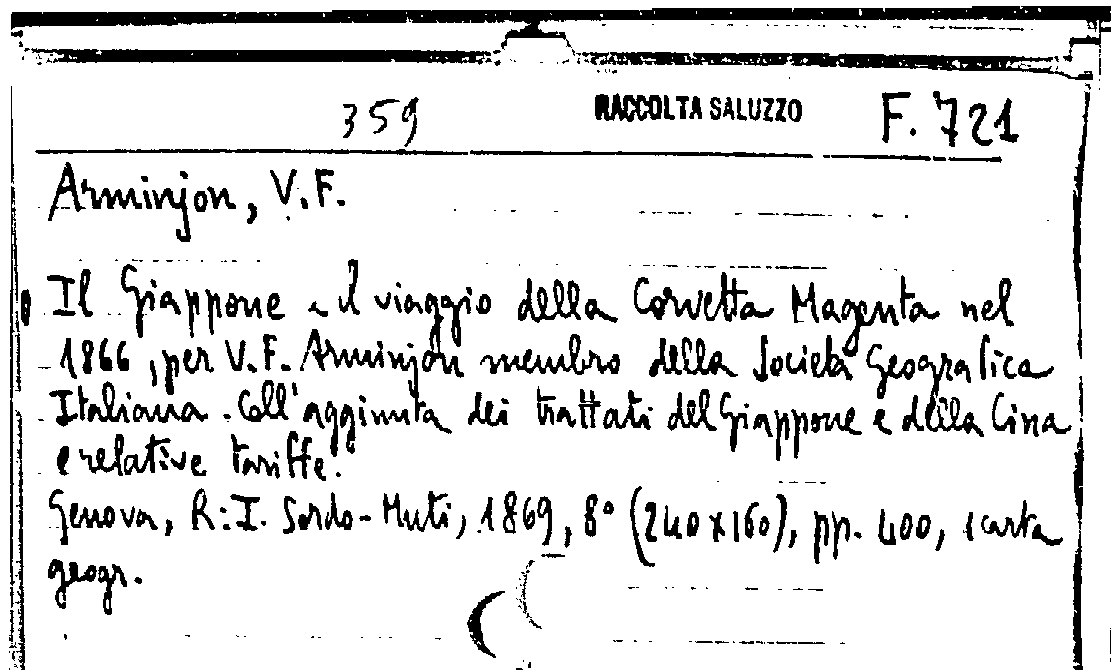 359 RACCOLTA SALUZZO F. 721
Arminjon, V.F.
Il Giappone e il viaggio della Corvetta Magenta nel
1866, per V.F. Arminjon membro della Società Geografica
Italiana. Coll'aggiunta dei trattati del Giappone e della Cina
e relative tariffe.
Genova, R: I. Sordo-Muti, 1869, 8° (240x160), pp. 400, 1 carta
geogr.